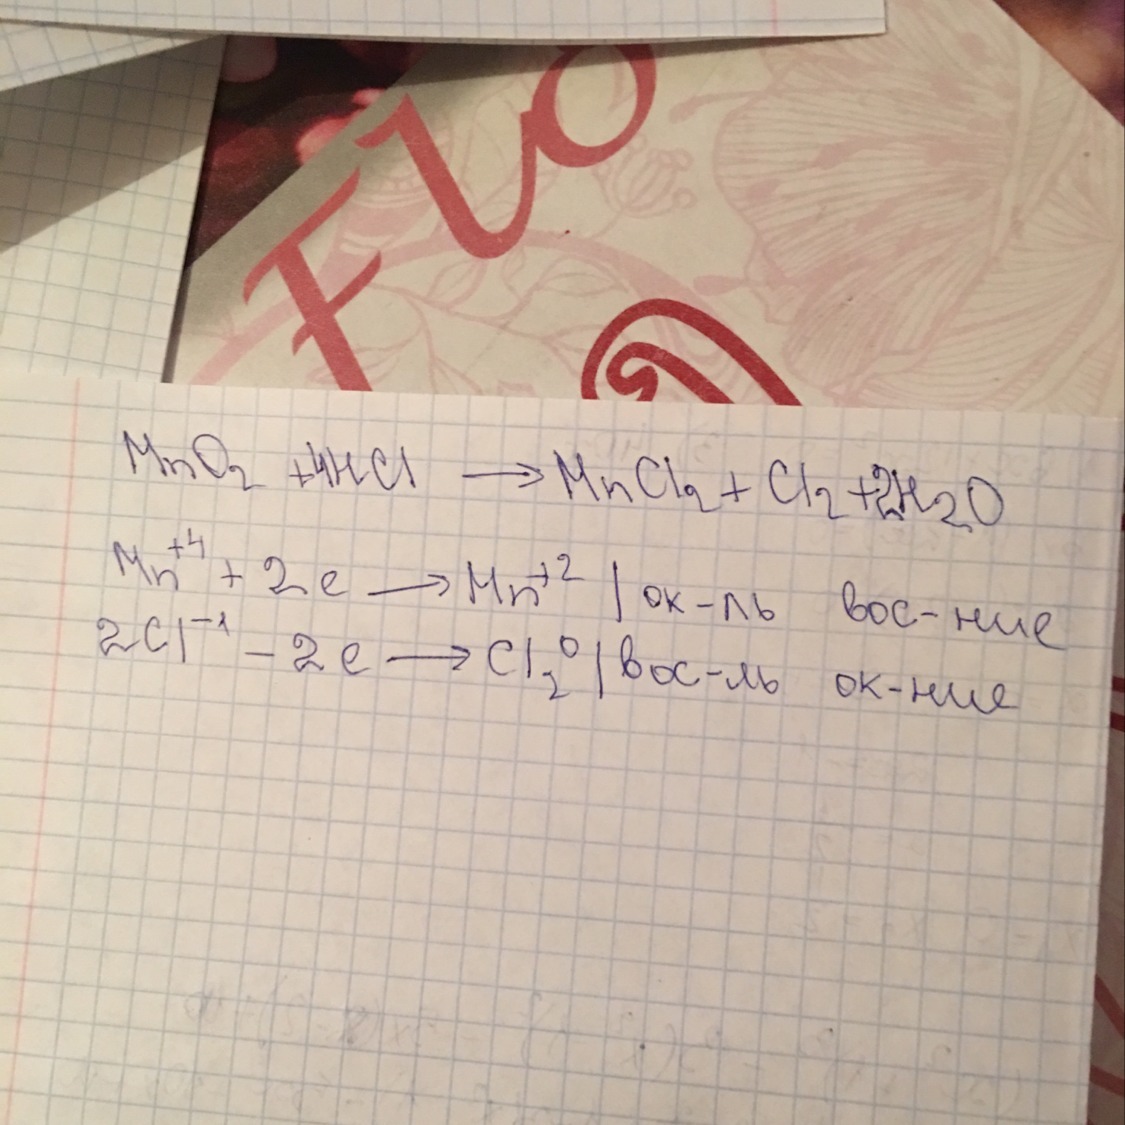 Flo
MnO₂ +4HCl → MnCl₂ + Cl₂ +2H₂O
Mn⁺⁴ + 2e → Mn⁺² | ок-ль вос-ние
2Cl⁻¹ - 2e → Cl₂⁰ | вос-ль ок-ние